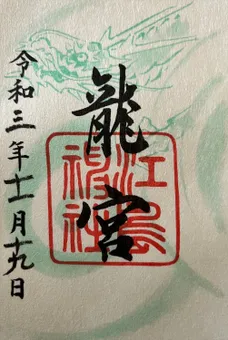 龍宮
江島
神社
令和三年十一月十九日